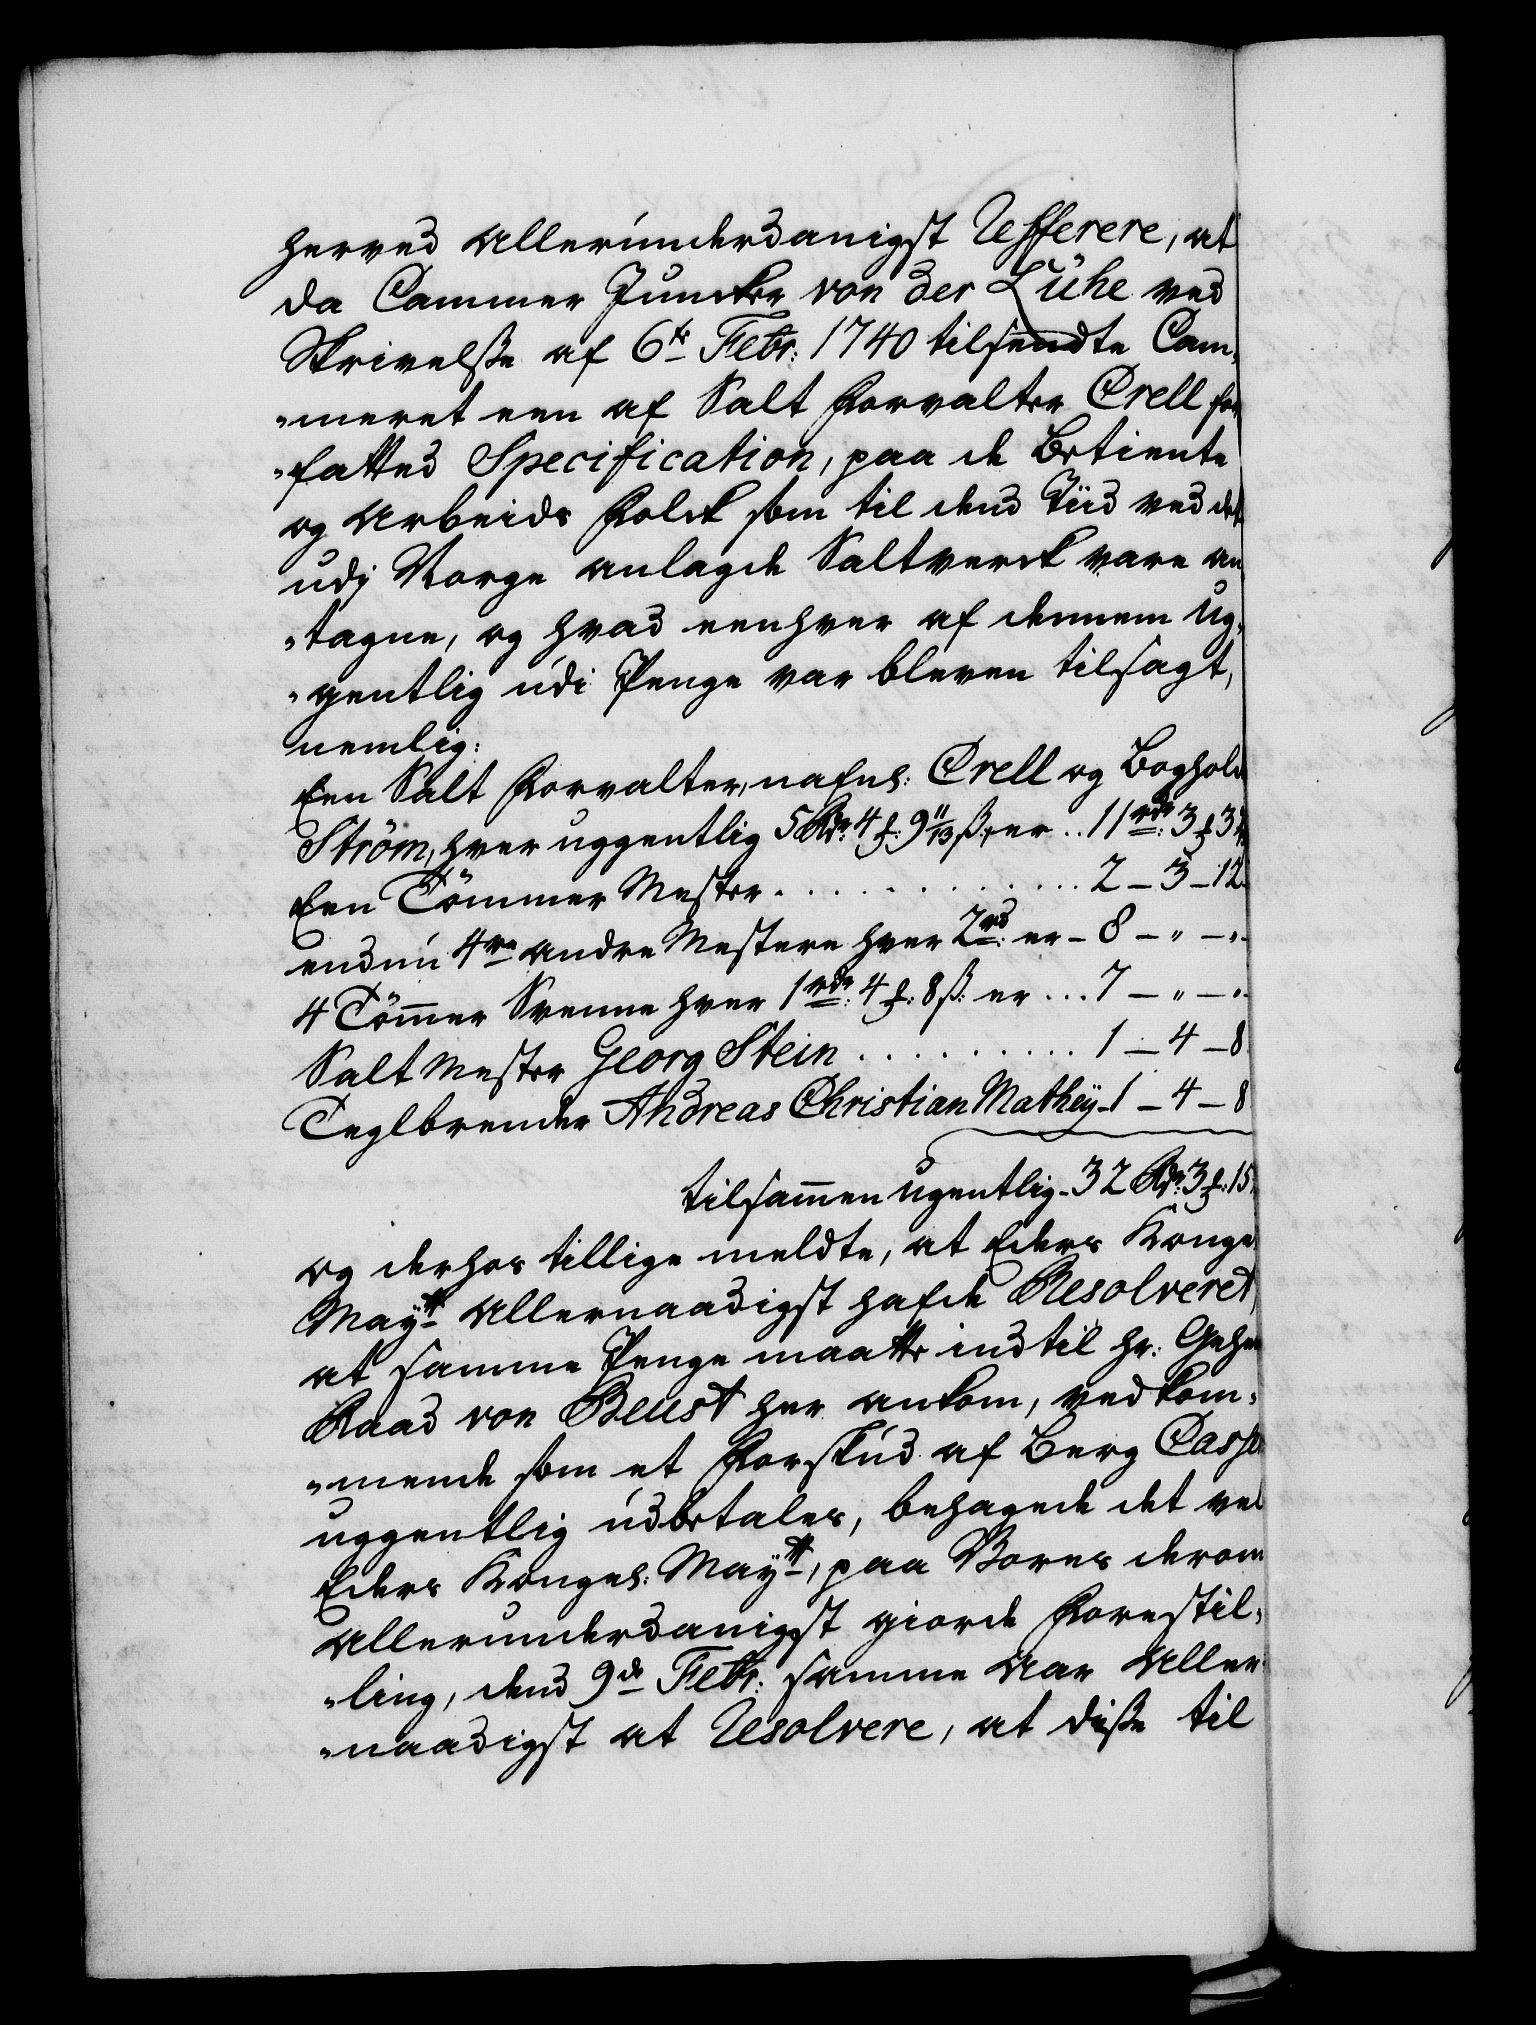 herved allerunderdanigst Refferere, at
da Cammer Juncker von der Lühe ved
Skrivelsse af 6te Febr: 1740 tilsendte Cam-
meret een af Salt Forvalter Crell for
fatted Specification, paa de Betiente
og Arbeids Folck som til dend Tiid ved det
udj Norge anlagde Saltverck vare an
tagne, og hvad eenhver af dennem ug-
gentlig udi Penge var bleven tilsagt,
nemlig:
Een Salt Forvalter, nafnl: Crell og Boghold
Ström, hver uggentlig 5 Rdr: 4 ƒ: 9 11/13 ß, er .. 11 rdr: 3 ƒ 3
Een Tömmer Mester . . . . . . . . . . . . 2 - 3 - 12
endnu 4re andre Mestere hver 2 rd: er - 8 - " - "
4 Töm̄er Svenne hver 1 rdr: 4 ƒ: 8 ß: er ... 7 - " - "
Salt Mester Georg Stein . . . . . . . . . . 1 - 4 - 8
Teglbrender Andreas Christian Mathey - 1 - 4 - 8
tilsam̄en ugentlig - 32 Rdr: 3 ƒ: 15
og derhos tillige meldte, at Eders Konge
Mayᵗᵗ allernaadigst hafde Resolveret,
at samme Penge maatte indtil Hr: Gehei
Raad von Beust her ankom, vedkom-
mende som et Forskud af Berg Casse
uggentlig udbetales, behagede det vel
Eders Kongel: Mayᵗᵗ, paa Vores derom
allerunderdanigst giorde Forestil-
ling, dend 9de Febr: samme Aar aller
naadigst at Resolvere, at disse til